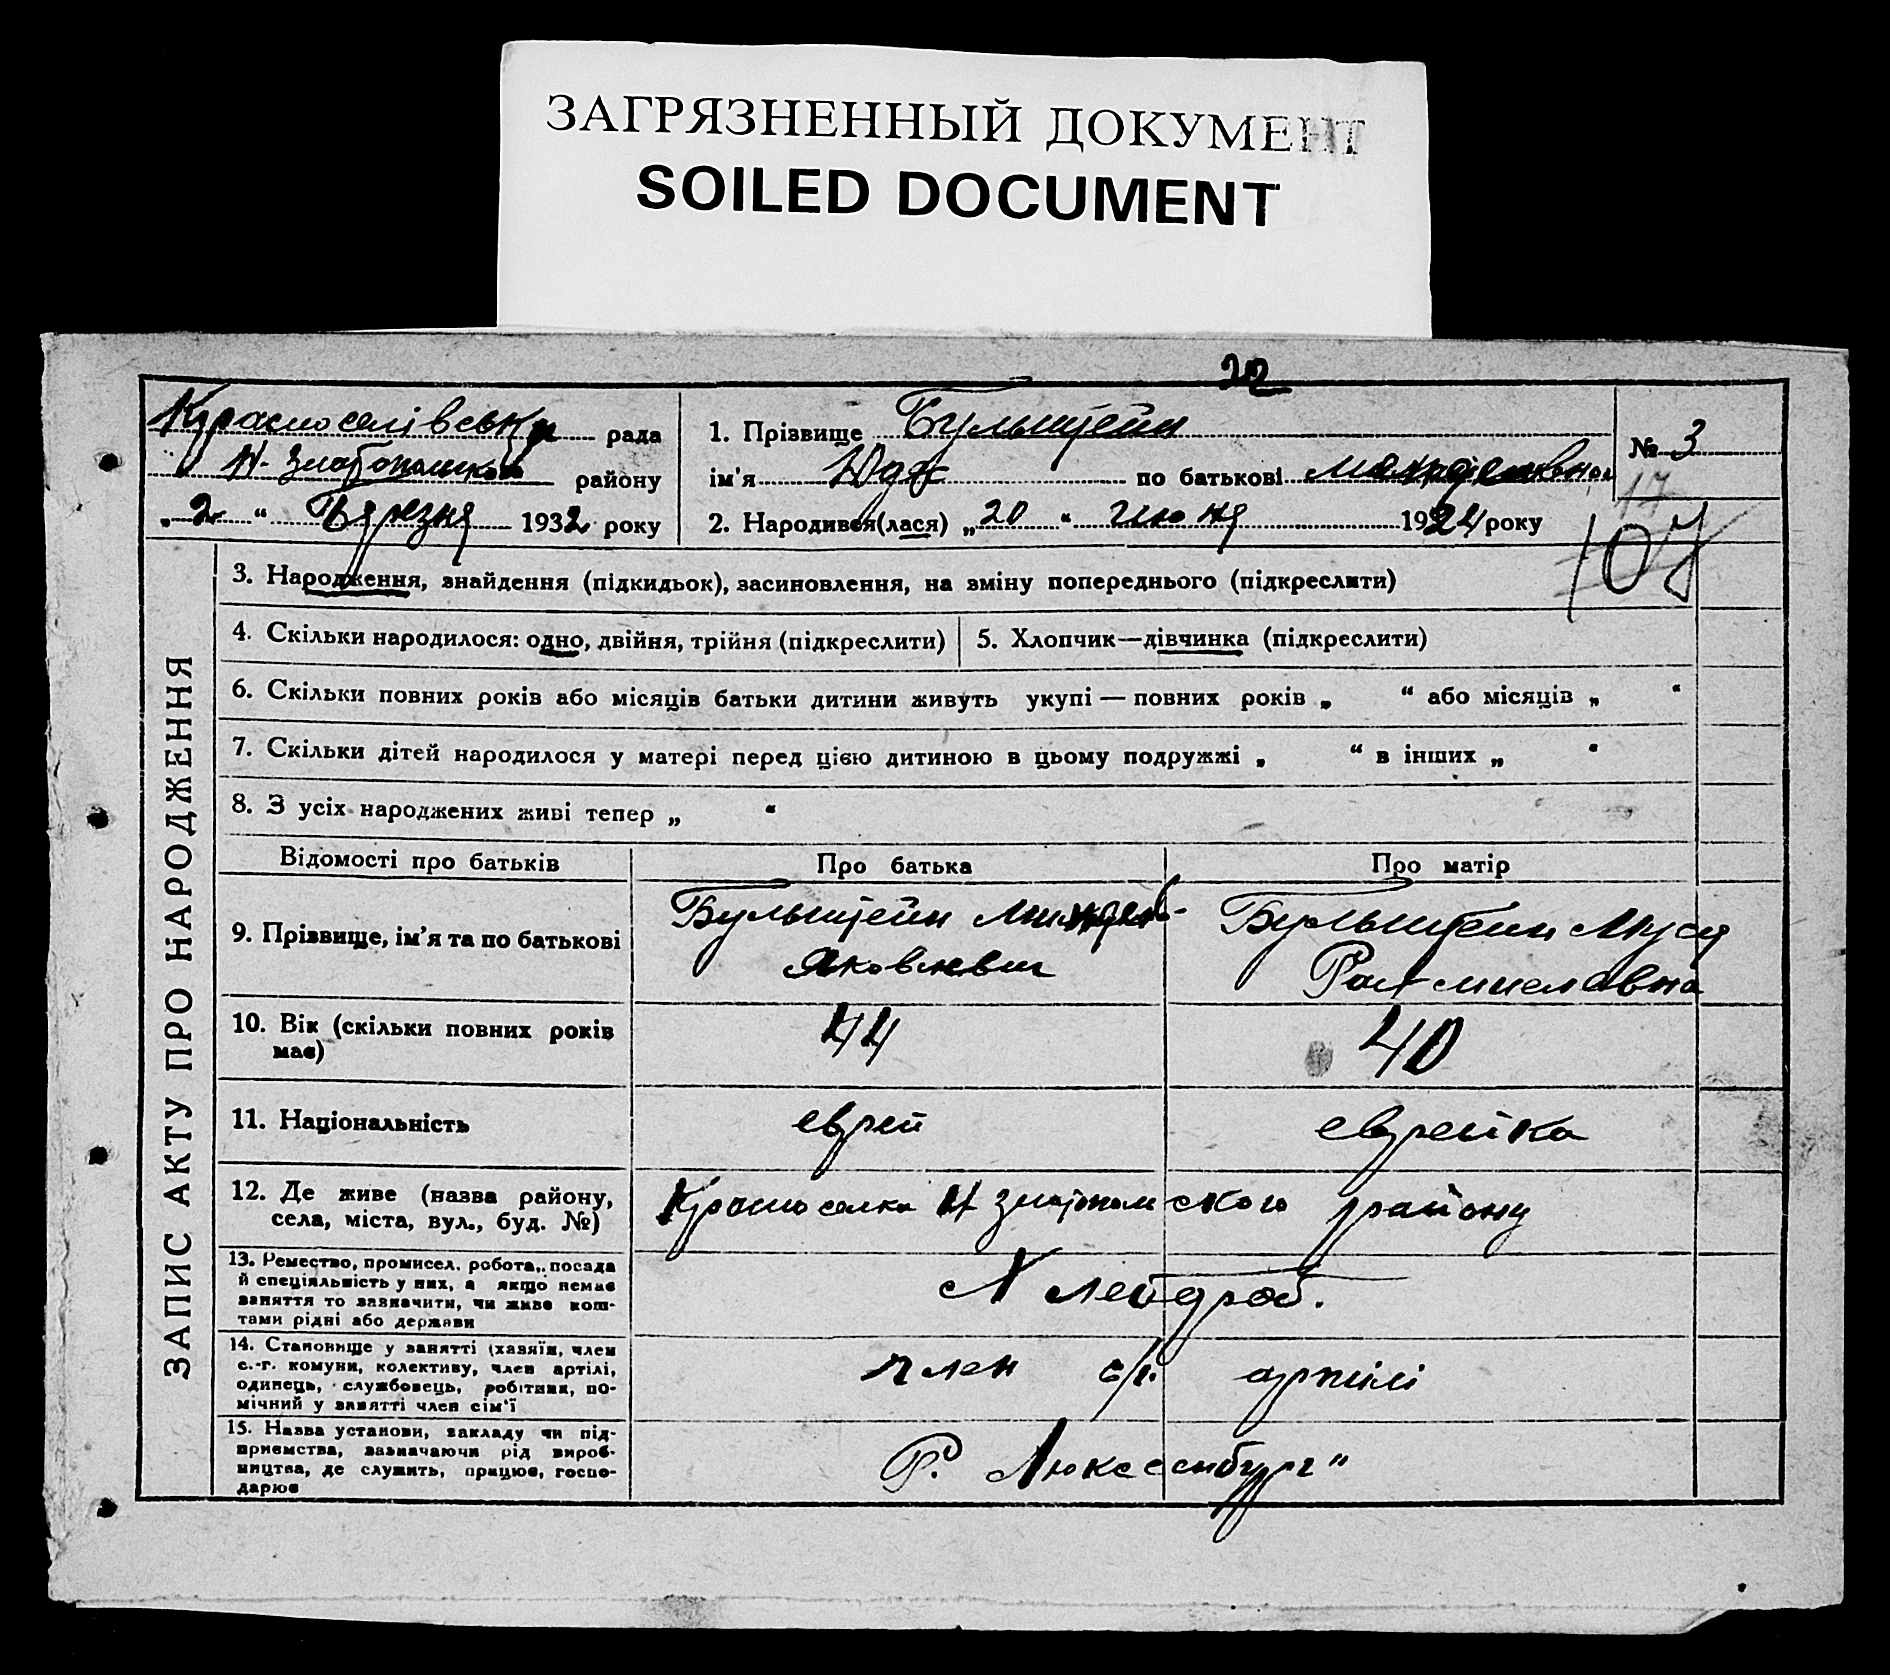 ЗАГРЯЗНЕННЫЙ ДОКУМЕНТ
SOILED DOCUMENT
22
Красноселівська рада
району
„2“ Березня 1932 року
1. Прізвище Бульштейн
ім'я Юдя по батькові
2. Народився(лася) „20“ июня 1924 року
№ 3
17
107
ЗАПИС АКТУ ПРО НАРОДЖЕННЯ
3. Народження, знайдення (підкидьок), засиновлення, на зміну попереднього (підкреслити)
4. Скільки народилося: одно, двійня, трійня (підкреслити)
5. Хлопчик—дівчинка (підкреслити)
6. Скільки повних років або місяців батьки дитини живуть укупі — повних років „ “ або місяців „ “
7. Скільки дітей народилося у матері перед цією дитиною в цьому подружжі „ “ в інших „ “
8. З усіх народжених живі тепер „ “
Відомості про батьків
Про батька
Про матір
9. Прізвище, ім'я та по батькові
Бульштейн
Яковлевич
Бульштейн Муся
10. Вік (скільки повних років
має)
44
40
11. Національність
еврей
еврейка
12. Де живе (назва району,
села, міста, вул., буд. №)
Красноселка Н Златопольского району
13. Ремество, промисел, робота, посада
й спеціяльність у них, а якщо немає
заняття то зазначити, чи живе кош-
тами рідні або держави
Хлейдроб.
14. Становище у занятті (хазяїн, член
с.-г. комуни, колективу, член артілі,
одинець, службовець, робітник, по-
мічний у занятті член сім'ї
член с/г. артілі
15. Назва установи, закладу чи під-
приємства, зазначаючи рід вироб-
ництва, де служить, працює, госпо-
дарює
Р. Люксембург"